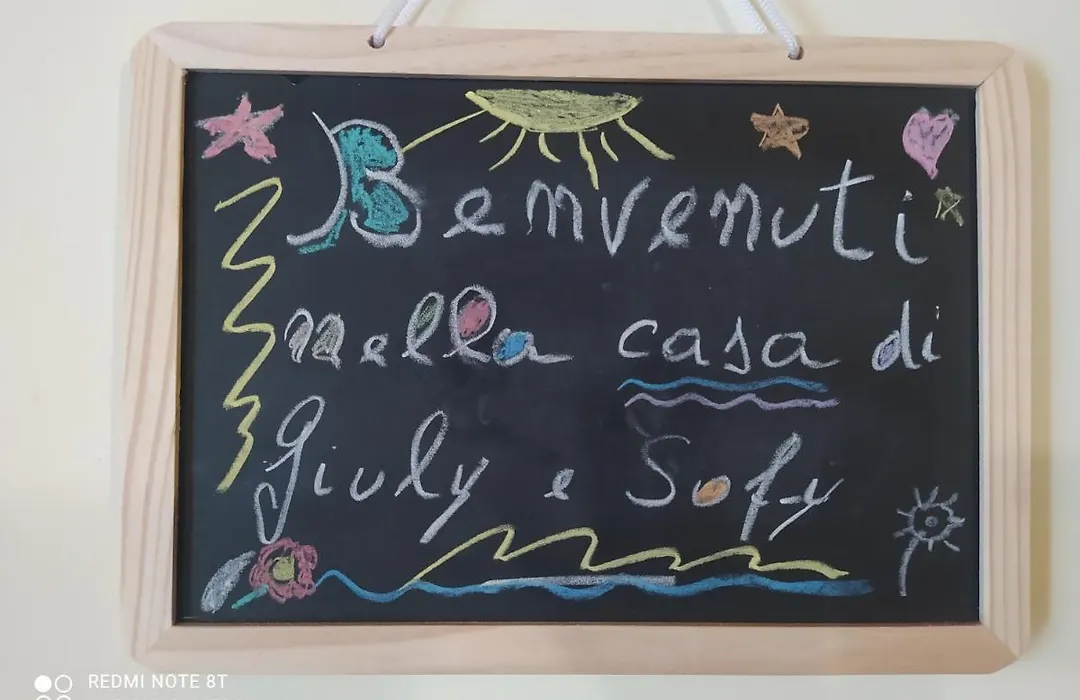 Benvenuti
nella casa di
Giuly e Sofy
REDMI NOTE 8T